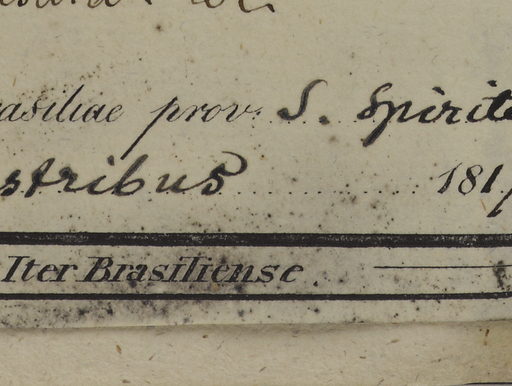 asiliae prov. S. Spirit
stribus 181
Iter Brasiliense.